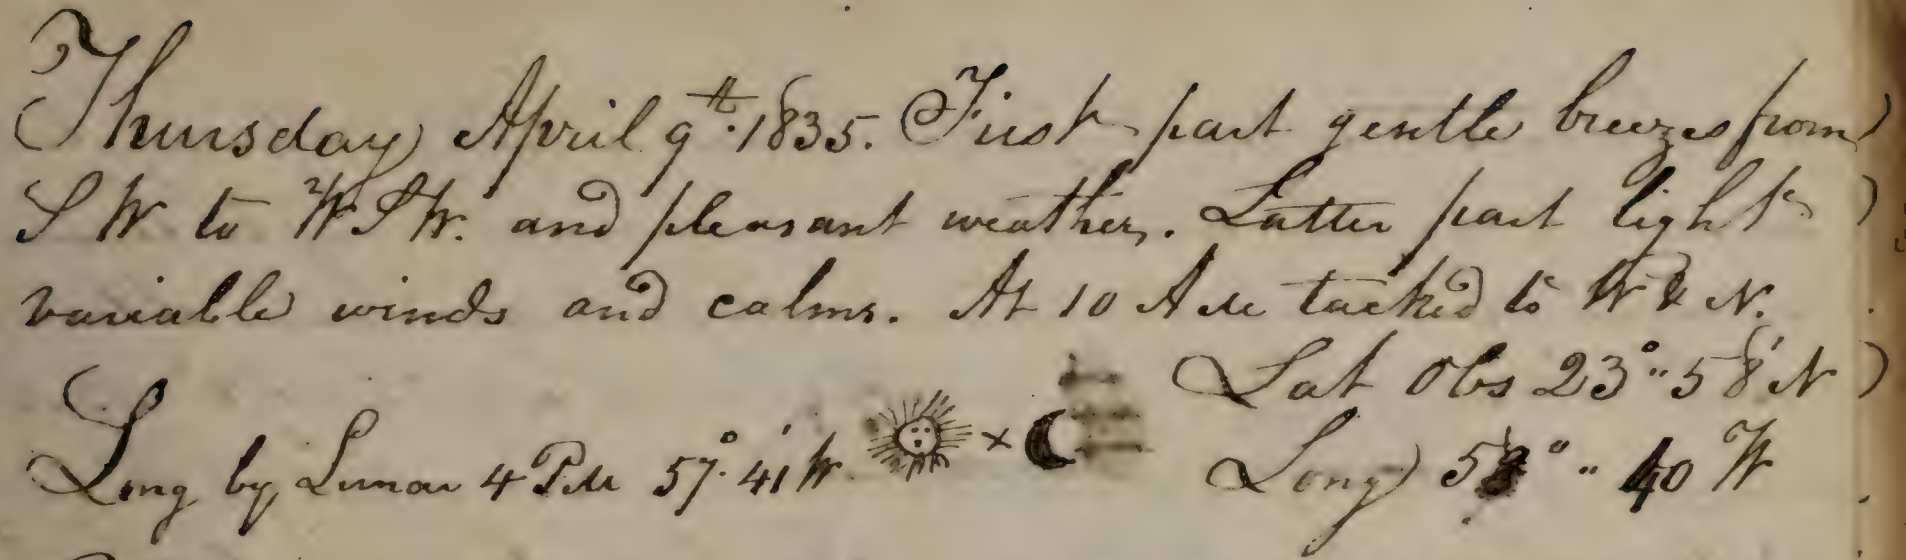 Thursday April 9th. 1835. First part gentle breezes from
S W to W S W. and pleasant weather. Latter part light
variable winds and calms. At 10 A M tacked to W & N.
Lat Obs 23°" 58' N
Long by Lunar 4 P M 57°. 41' W × Long °" 40 W